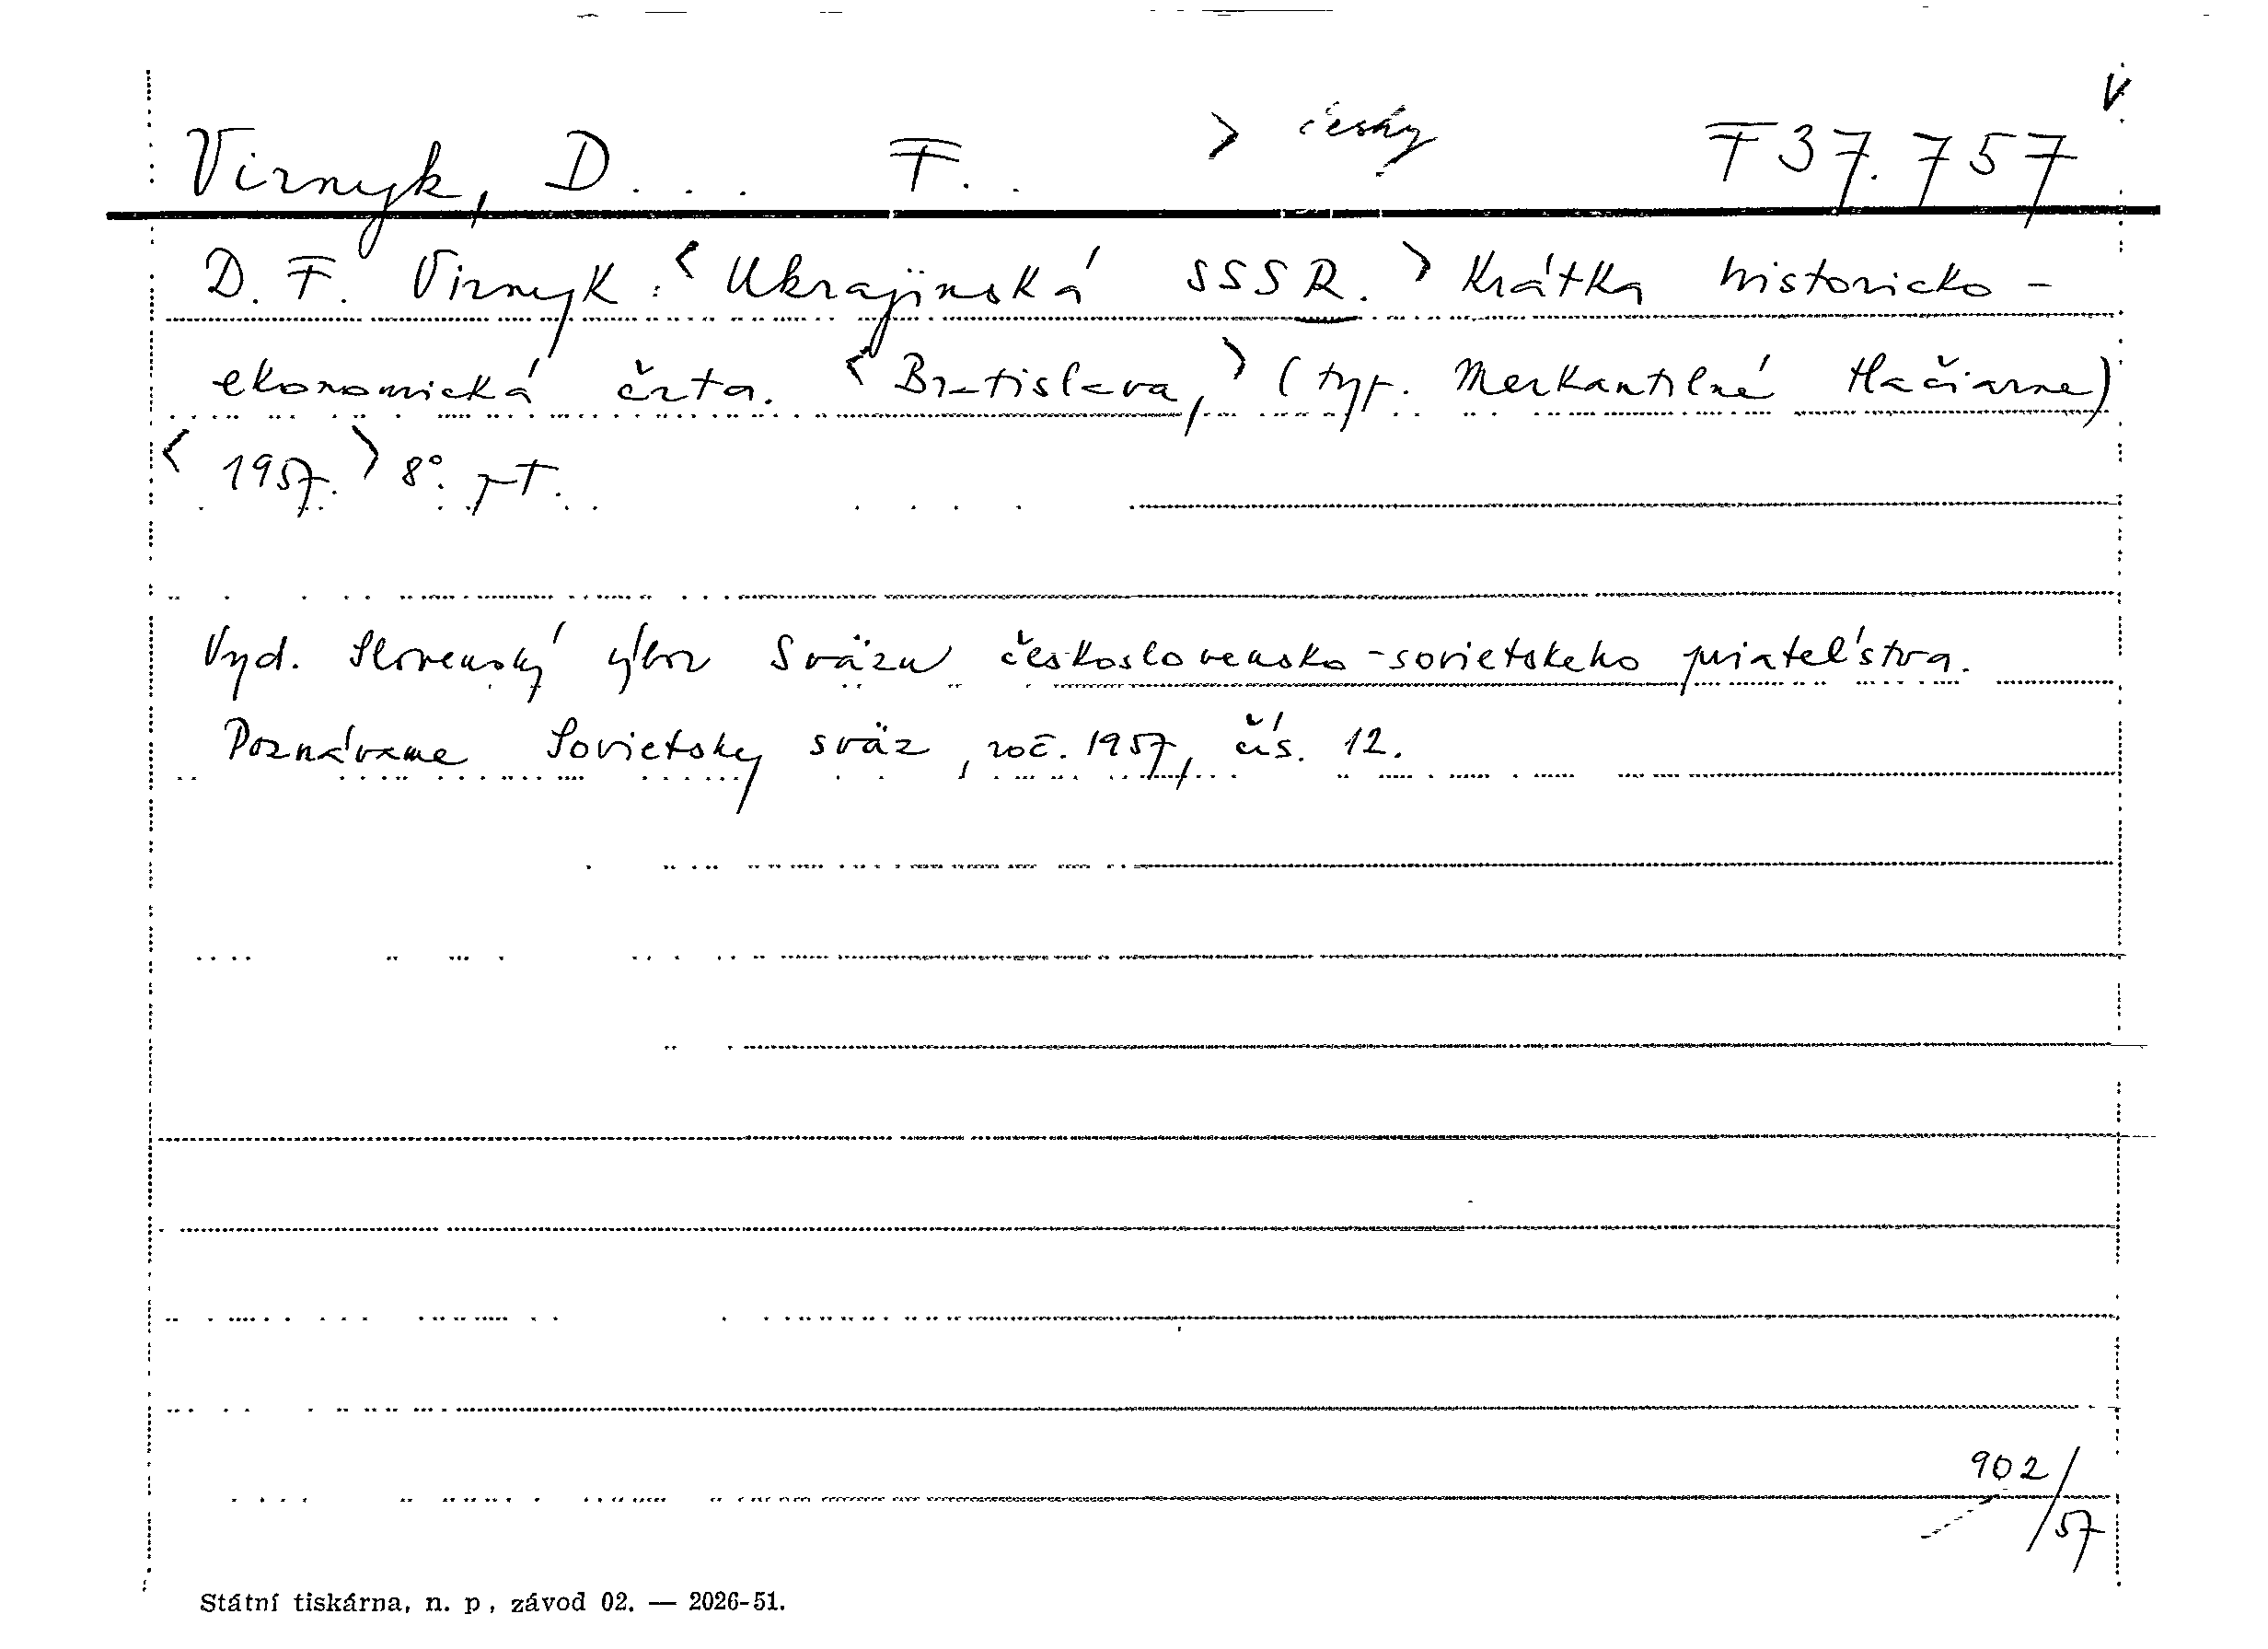 V
Virnyk, D... F.. > česky F 37.757
D. F. Virnyk: < Ukrajinská SSSR. > Krátka historicko-
ekonomická črta. < Bratislava, > (typ. Merkantilné tlačiarne)
< 1957. > 8°.
Vyd. Slovenský výbor Sväzu československo-sovietskeho priateľstva.
Poznávame Sovietsky sväz, roč. 1957, čís. 12.
902/
57
Státní tiskárna, n. p, závod 02. — 2026-51.